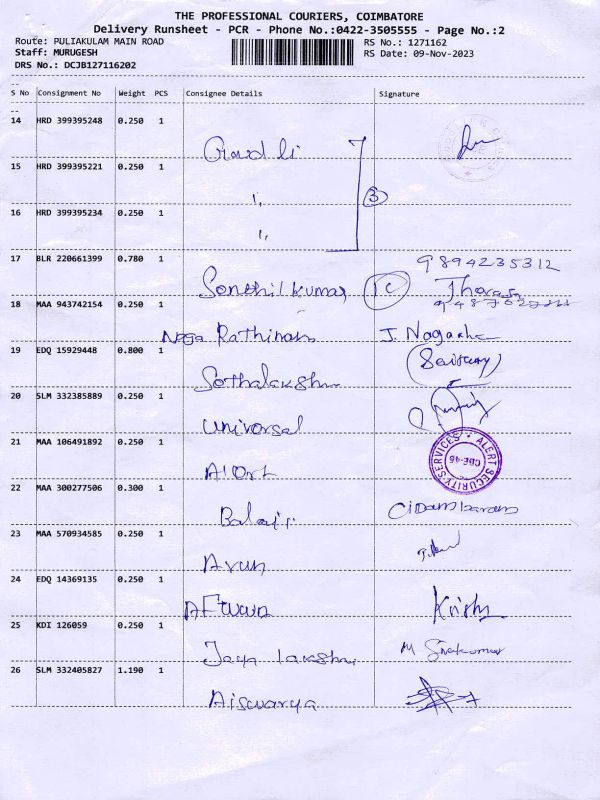 THE PROFESSIONAL COURIERS, COIMBATORE
Delivery Runsheet - PCR - Phone No.:0422-3505555 - Page No.:2
Route: PULIAKULAM MAIN ROAD RS No.: 1271162
Staff: MURUGESH RS Date: 09-Nov-2023
DRS No.: DCJB127116202
S No Consignment No Weight PCS Consignee Details Signature
14 HRD 399395248 0.250 1
15 HRD 399395221 0.250 1
" 3
16 HRD 399395234 0.250 1
"
17 BLR 220661399 0.780 1 9894235312
Senthil kumar
18 MAA 943742154 0.250 1
Naga Rathinam J. Naga
19 EDQ 15929448 0.800 1
20 SLM 332385889 0.250 1
Universal
21 MAA 106491892 0.250 1 ALERT SECURITY SERVICES CBE-45
Alert
22 MAA 300277506 0.300 1
Balaji Cidambaram
23 MAA 570934585 0.250 1
Arun
24 EDQ 14369135 0.250 1
Krish
25 KDI 126059 0.250 1
Jaya lakshmi M Sivakumar
26 SLM 332405827 1.190 1
Aiswarya